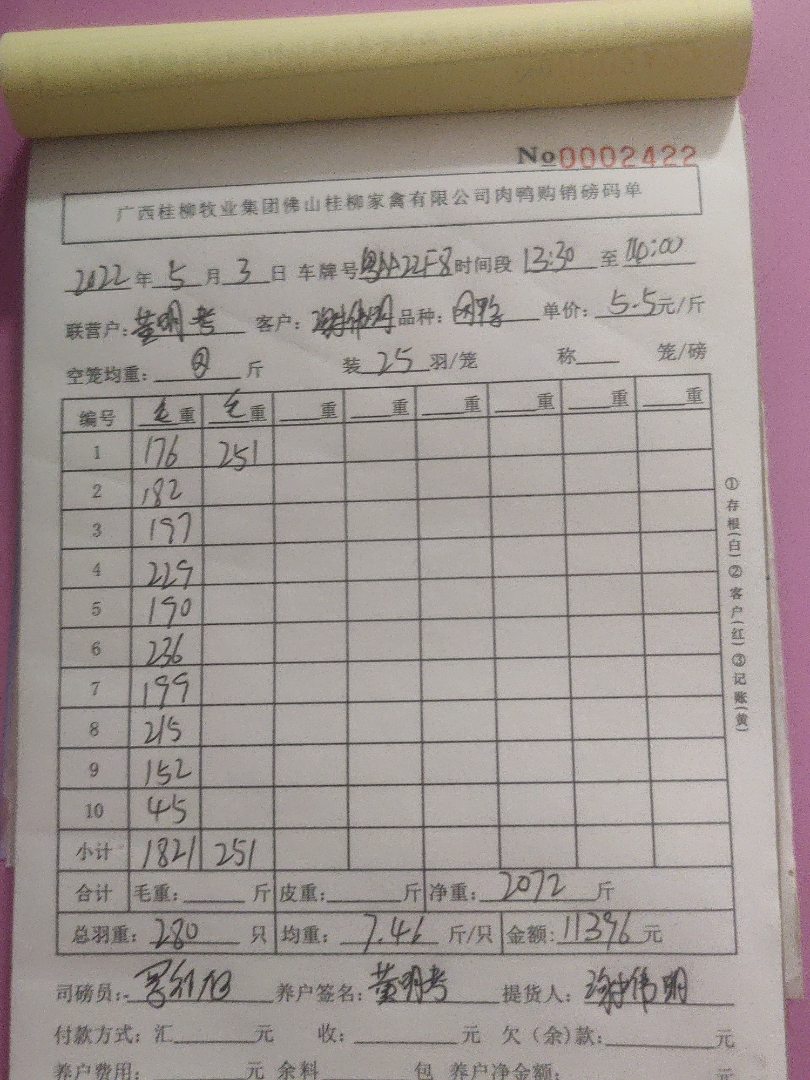 No 0002422
广西桂柳牧业集团佛山桂柳家禽有限公司肉鸭购销磅码单
2022年5月3日 车牌号 粤A22F8 时间段 13:30 至 14:00
联营户:黄明考 客户:谢伟明 品种:肉鸭 单价:5.5元/斤
空笼均重: 斤 装25羽/笼 称 笼/磅
编号 毛重 毛重 重 重 重 重 重 重
1 176 251
2 182
3 197
4 229
5 190
6 236
7 199
8 215
9 152
10 45
小计 1821 251
合计 毛重: 斤 皮重: 斤 净重:2072斤
总羽重:280只 均重:7.46斤/只 金额:11396元
司磅员: 养户签名:黄明考 提货人:谢伟明
付款方式:汇 元 收: 元 欠(余)款: 元
养户费用: 元 余料 包 养户净金额: 元
①存根(白)②客户(红)③记账(黄)